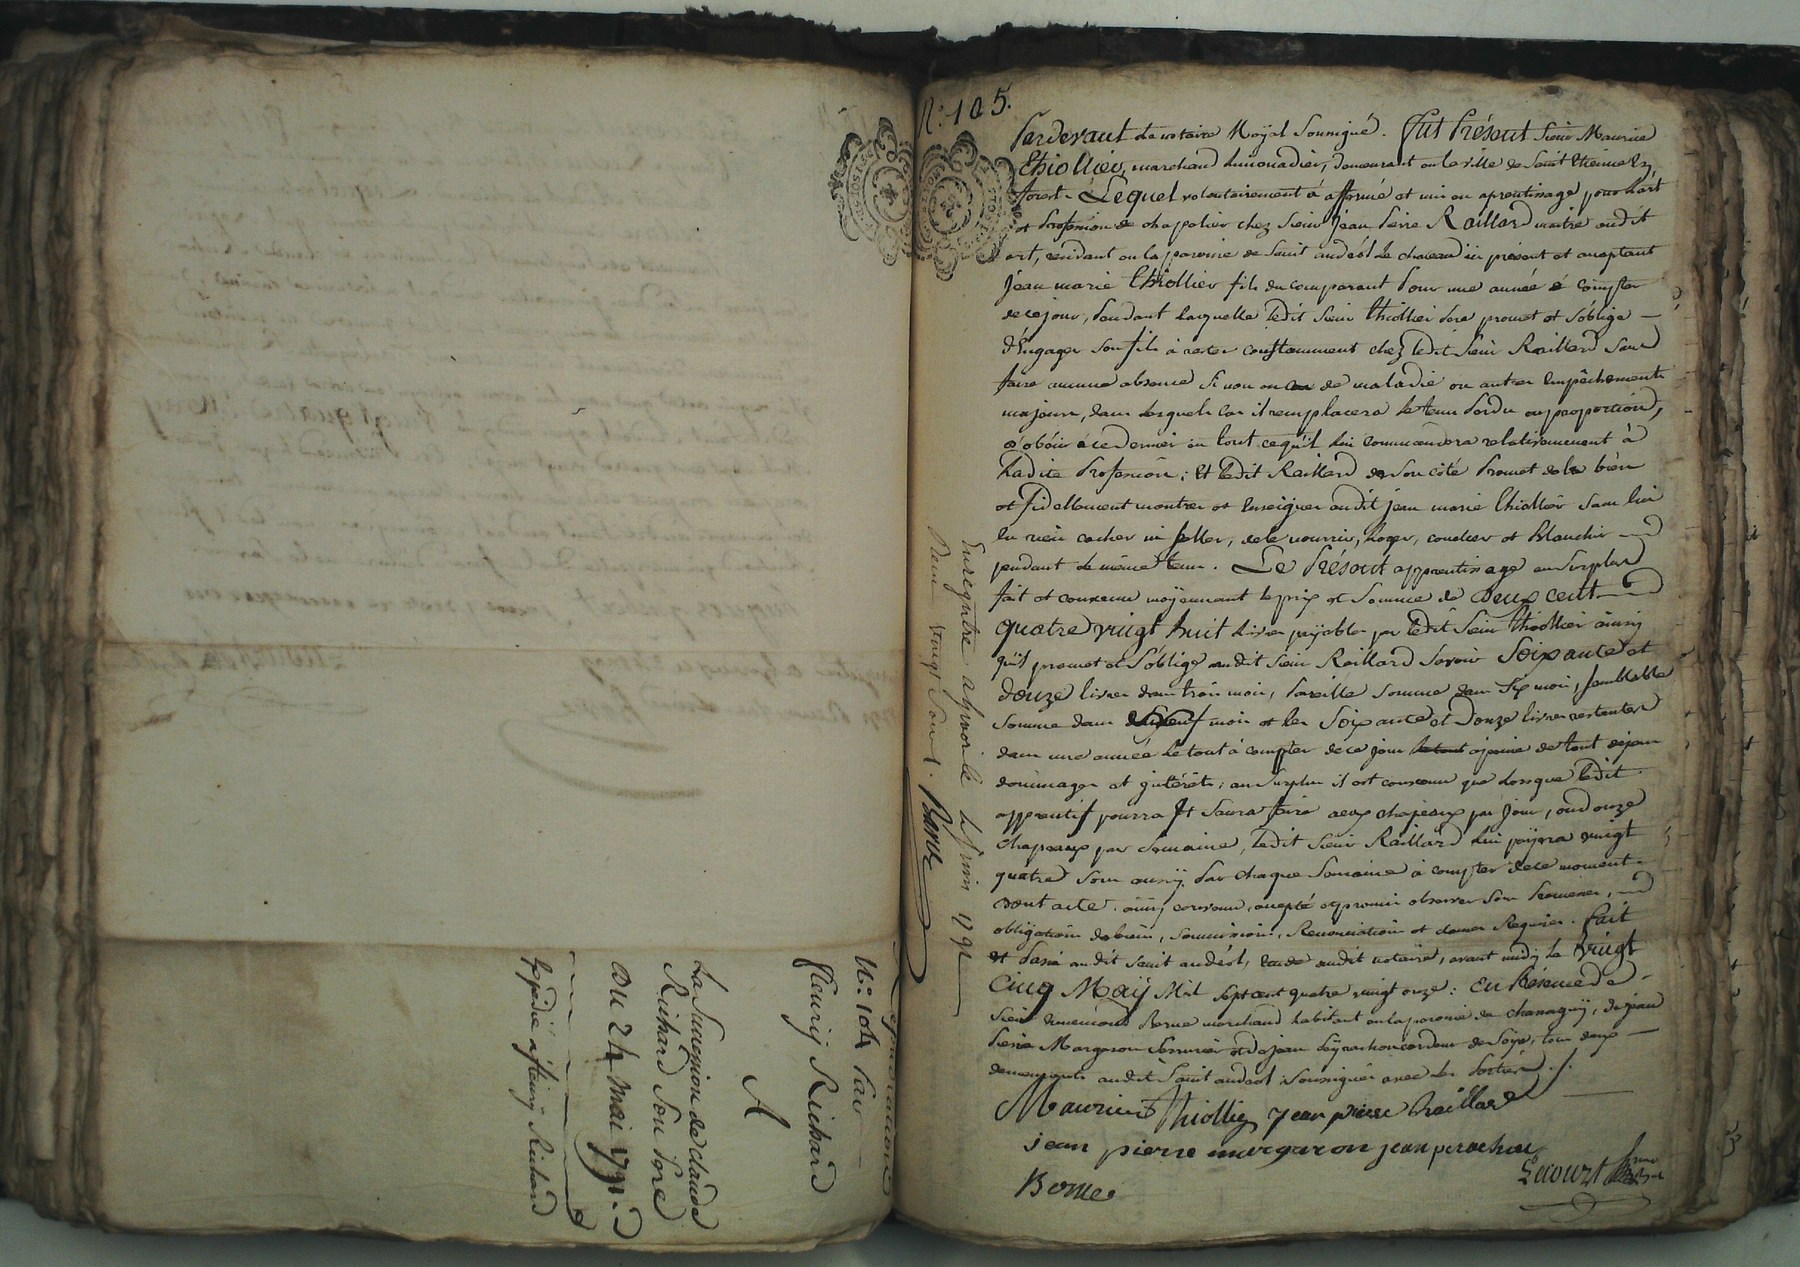 Repudiation
N.o 104 par
fleurij Richard
A
La Succession de claude
Richard Son Pere
Du 24 mai 1791.
Expédié a fleurij Richard
N.o 105.
Pardevant Le notaire Royal Soussigné. Fut Présent Sieur Maurice
Thiollier, marchand limonadier, demeurant en la ville de Saint Etienne En
forest. Lequel volontairement à affermé et mis en aprentissage pour L'art
et Profession de chapelier chez Sieur Jean Pierre Raillard maitre audit
art, residant en la paroisse de Saint andéol le chateau ici présent et aceptant
Jean marie Thiollier fils du comparant Pour une année à Compter
de ce jour, Pendant Laquelle Ledit Sieur thiollier Pere promet et S'oblige
d'Engager Son fils à rester Constamment chez Ledit Sieur Raillard Sans
faire aucune absence Si non en cas de maladie ou autres Empêchements
majeurs, dans lesquels Cas il remplacera le tems Perdu en proportion,
d'obéir à ce dernier en tout ce qu'il Lui commandera relativement à
Ladite Profession; Et Ledit Raillard de Son côté Promet de bien
et fidellement montrer et Enseigner audit jean marie thiollier Sans lui
En rien cacher ni seller, de le nourrir, Loger, coucher et Blanchir
pendant le même tems. Le Présent apprentissage au Surplus
fait et convenu moyennant le prix et Somme de Deux cent
quatre vingt huit Livres payables par Ledit Sieur thiollier ainsy
qu'il promet et S'oblige audit Sieur Raillard Savoir Soixante et
douze livres dans trois mois, Pareille Somme dans Six mois, Semblable
Somme dans neuf mois et les Soixante et Douze livres restantes
dans une année Le tout à compter de ce jour a peine de tout depens
dommages et intérêts; au Surplus il est convenu que Lorsque Ledit
apprentif pourra Et Saura faire deux chapeaux par Jour, ou douze
Chapeaux par Semaine, Ledit Sieur Raillard Lui payera vingt
quatre Sous aussy Par Chaque Semaine à compter de ce moment.
Dont acte. ainsy convenu, accepté et promis observer Sous Serment,
obligation de biens, Soumissions, Renonciations et clauses Requises. Fait
et Passé audit Saint andéol, Etude audit notaire, avant midy Le Vingt
Cinq May Mil Sept cent quatre vingt onze: En Présence de
Sieur Berne marchand habitant en la paroisse de chanagny, de jean
Pierre Margaron Serrurier et de jean Peyrachon cordeur de Soye, tous deux
demeurants audit Saint andeol Soussignés avec Les Parties./.
Maurice Thiollier Jean pierre Raillard
jean pierre margaron jean perachon
Berne
Lecourt
Enregistré a Givors le juin 1791
Reçu vingt Sous.